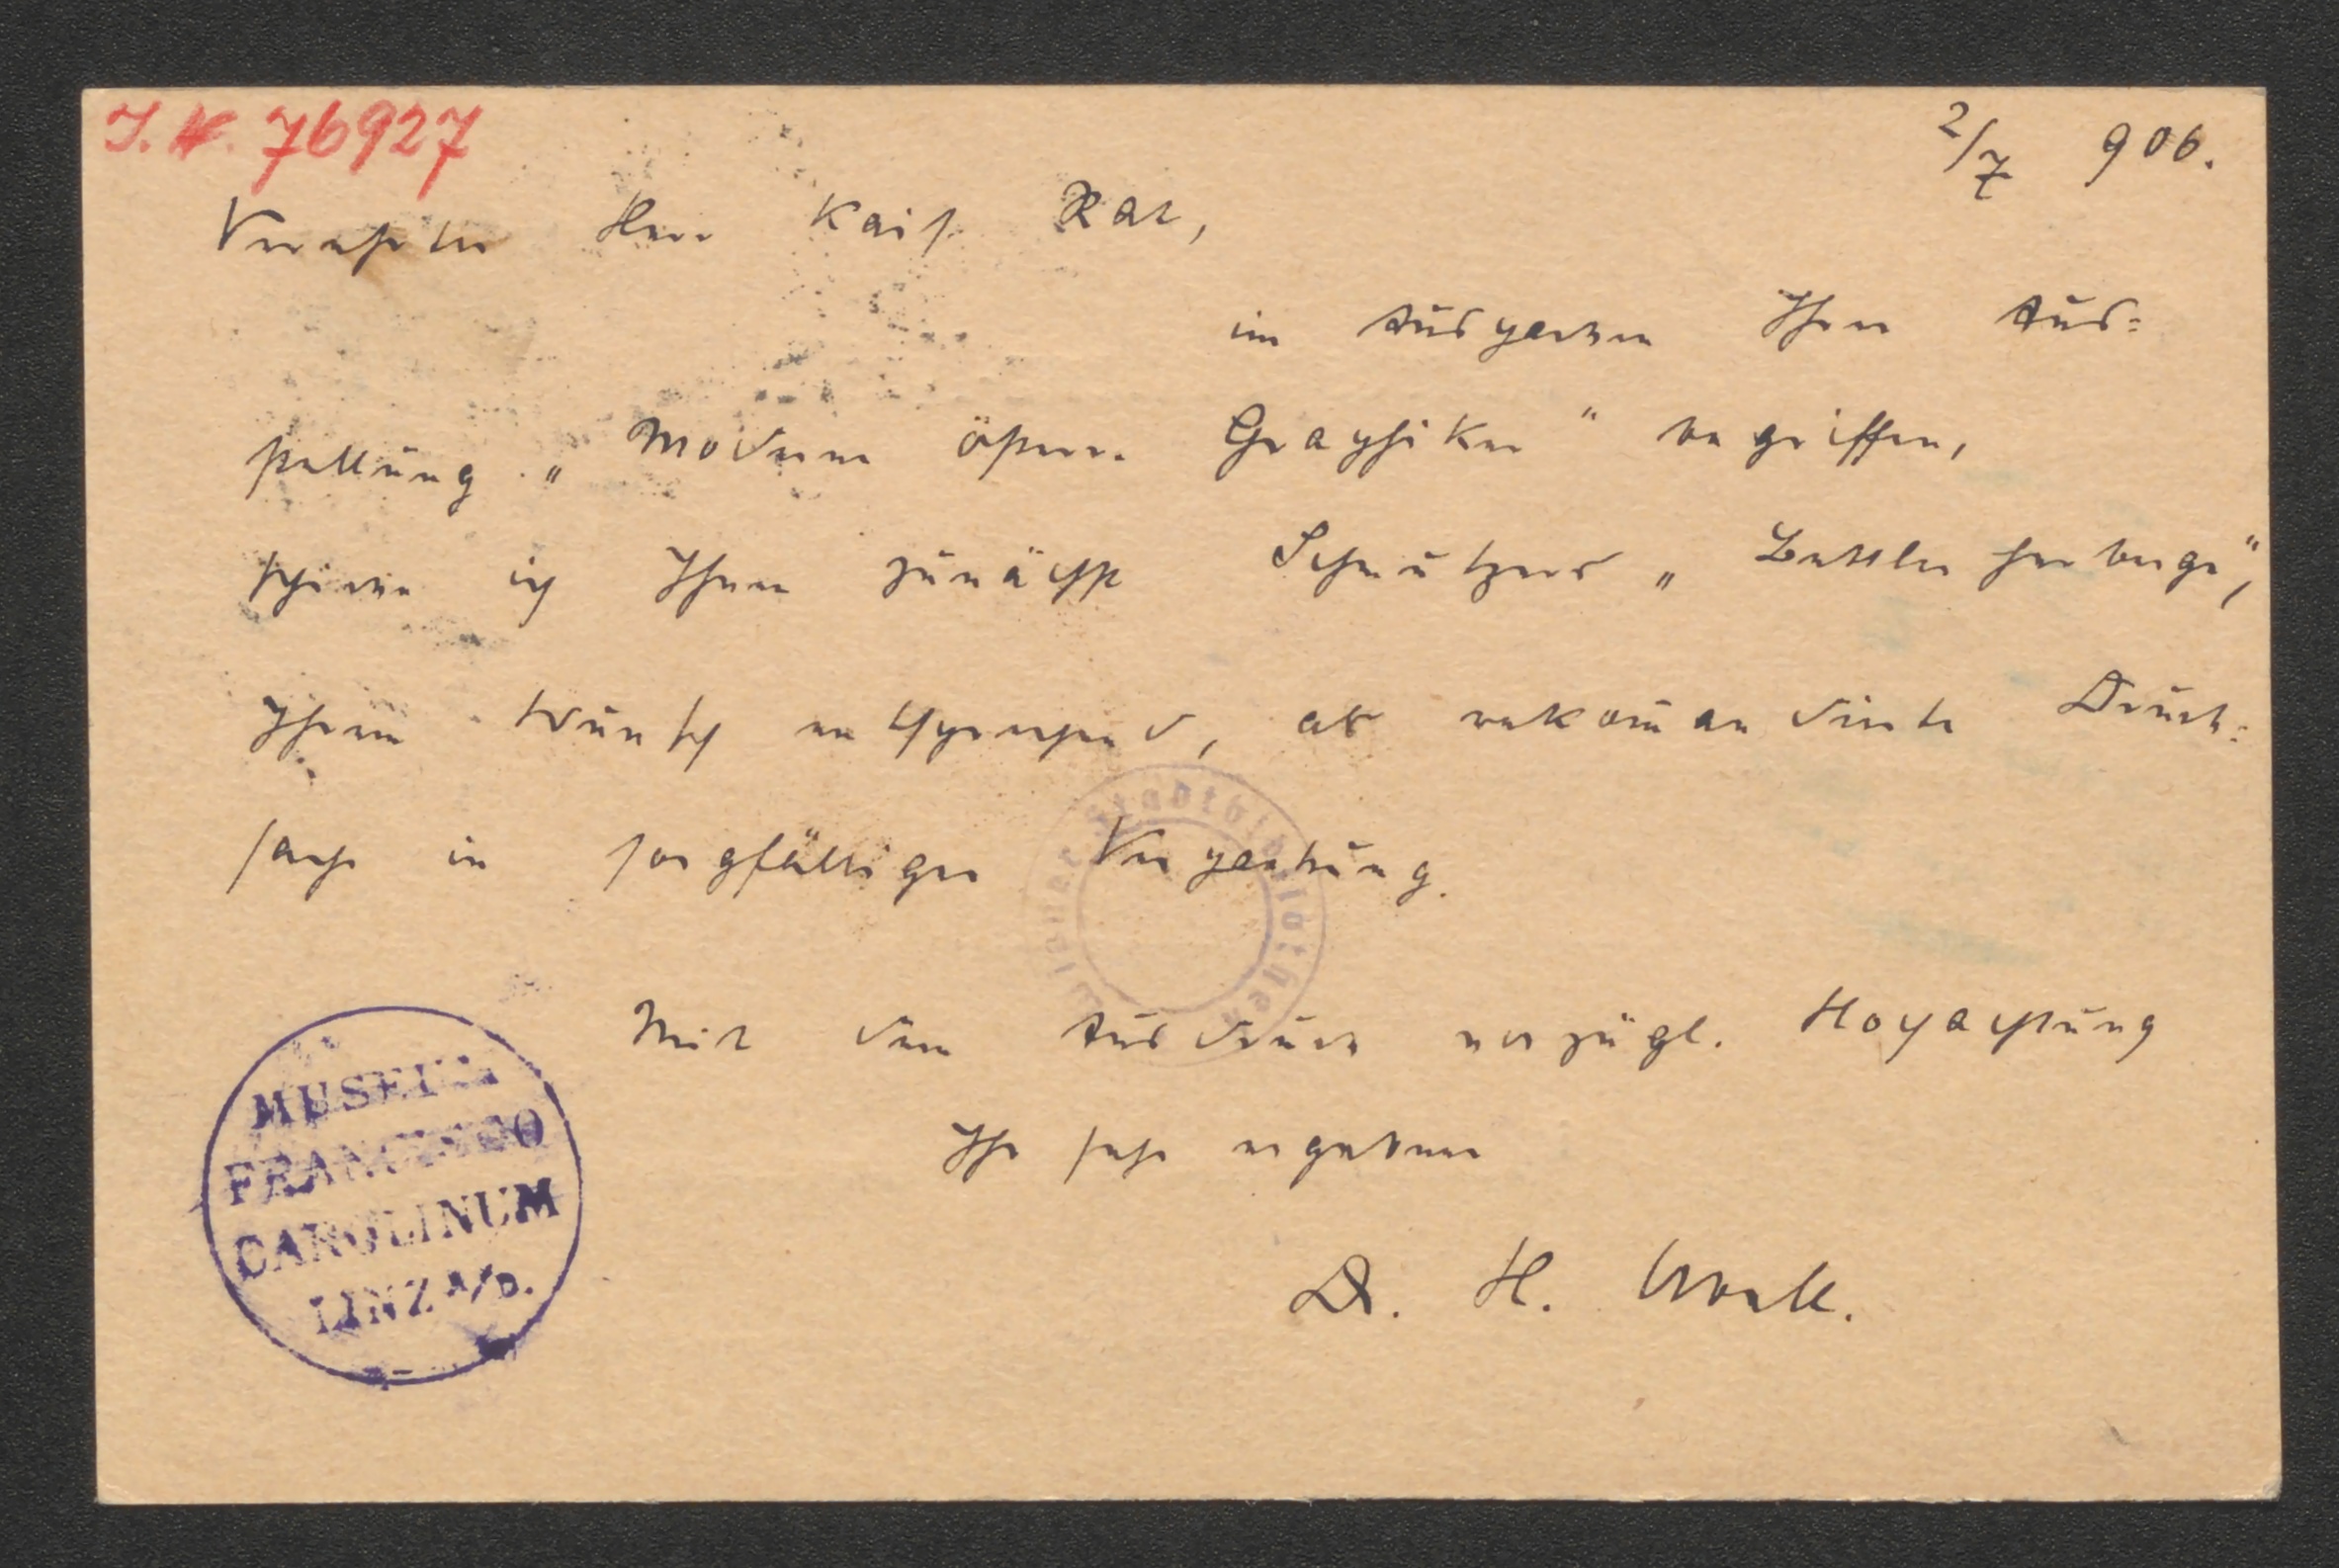 J. N. 76927
2/7 906.
Verehrter Herr Kais. Rat,
im Auspacken Ihrer Aus=
stellung „Moderne österr. Graphiker" begriffen,
schicke ich Ihnen zunächst Schmutzers „Bettlerherberge",
Ihrem Wunsch entsprechend, als rekomandierte Druck=
sache in sorgfältiger Verpackung.
Mit dem Ausdruck vorzügl. Hochachtung
Ihr sehr ergebener
Dr. H. Ubell.
Wiener Stadtbibliothek
MUSEUM
FRANCISCO
CAROLINUM
LINZ A/D.